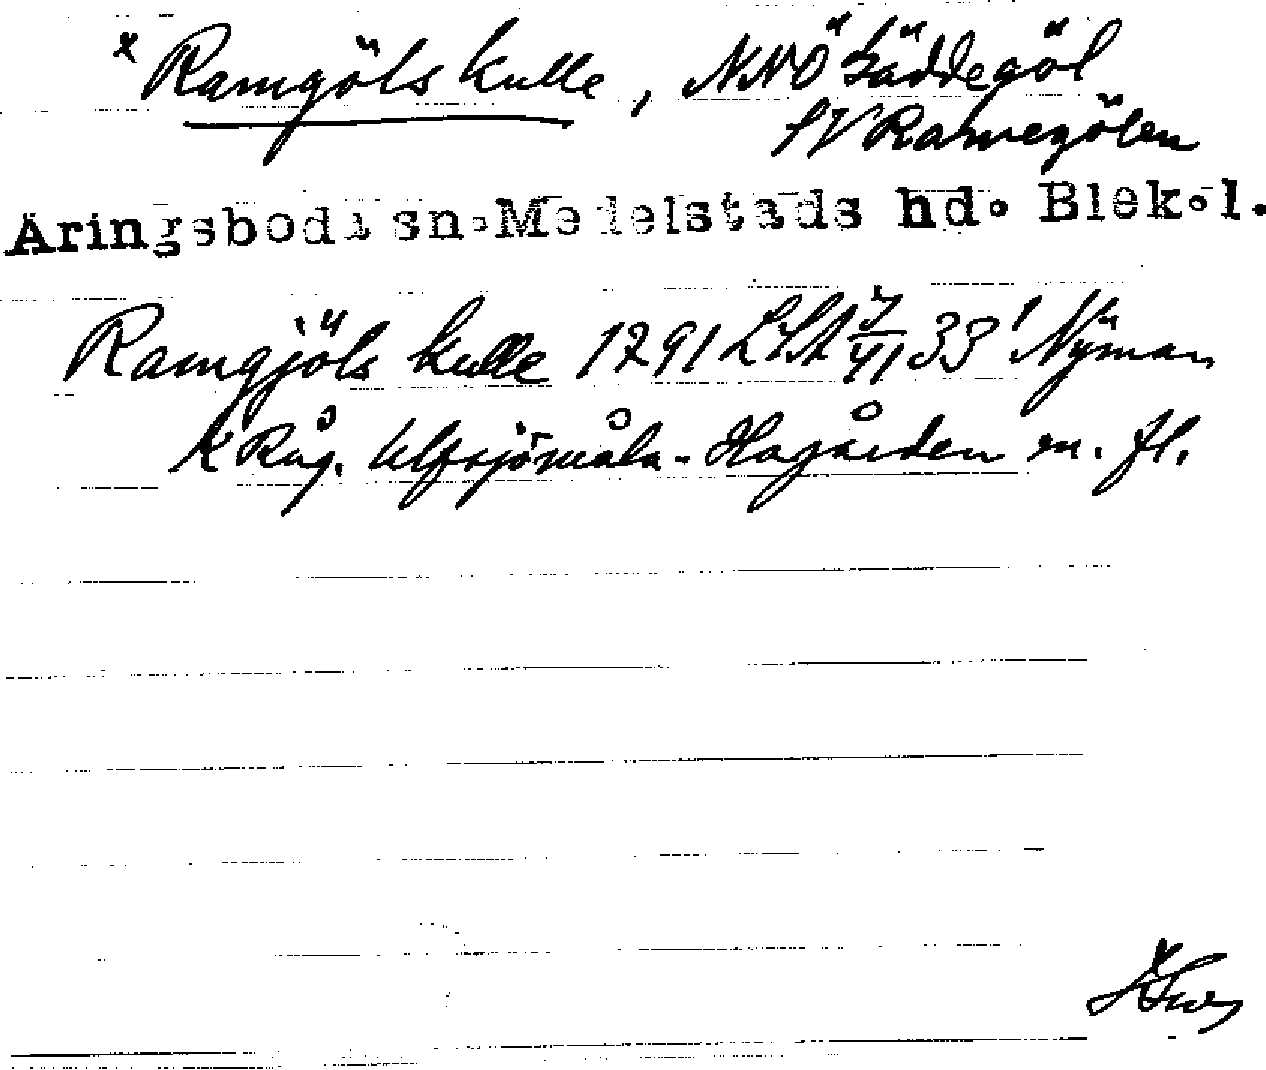 x Ramgöls kulle, NNÖ Gäddegöl
SV Ramegölen
Äringsboda sn. Medelstads hd. Blek.l.
Ramgjöls kulle 1791 LSA 33' Nyman
K Råg. Ulfsjömåla - Hagården m. fl.